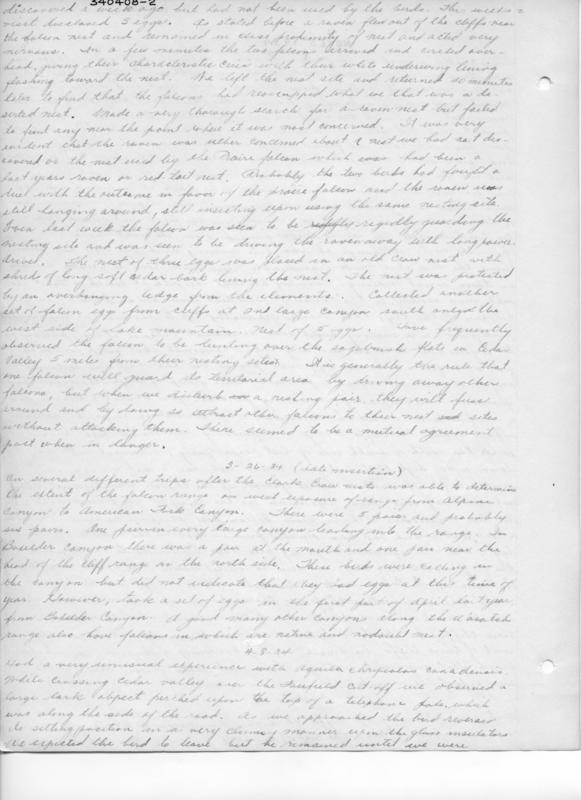 340408-2
discovered a week ago but had not been used by the birds. The weeks
nest disclosed 3 eggs. As stated before a raven flew out of the cliffs near
the falcon nest and remained in close proximity of nest and acted very
nervous. In a few minutes the two falcons arrived and circled over-
head, giving their characteristic cries with their white underwing lining
flashing toward the nest. We left the nest site and returned 20 minutes
later to find that the falcons had reoccupied what we that was a de
serted nest. Made a very thorough search for a raven nest but failed
to find any near the point where it was most concerned. It was very
evident that the raven was either concerned about a nest we had not dis-
covered or the nest used by the Prairie falcon which was had been a
last years raven or red tail nest. Probably the two birds had fought a
duel with the outcome in favor of the prairie falcon and the raven was
still hanging around, still insisting upon using the same nesting site.
Even last week the falcon was seen to be rigidly guarding the
nesting site and was seen to be driving the raven away with long power
drives. The nest of three eggs was placed in an old raven nest with
shreds of long soft cedar bark lining the nest. The nest was protected
by an overhanging ledge from the elements. Collected another
set of falcon eggs from cliffs at 2nd large canyon south end of the
west side of lake mountain. Nest of 5 eggs. Have frequently
observed the falcon to be hunting over the sagebrush flats in Cedar
Valley 5 miles from their nesting sites. It is generally the rule that
one falcon will guard its territorial area by driving away other
falcons, but when we disturb a nesting pair they will fuss
around and by doing so attract other falcons to their nest sites
without attacking them. There seemed to be a mutual agreement
pact when in danger.
3-26-34 (late insertion)
On several different trips after the Clark Crow nests was able to determine
the extent of the falcon range on west exposure of range from Alpine
Canyon to American Fork Canyon. There were 5 pairs and probably
six pairs. One pair in every large canyon leading into the range. In
Boulder Canyon there was a pair at the mouth and one pair near the
head of the cliff range on the north side. These birds were calling in
the canyon but did not indicate that they had eggs at this time of
year. However, took a set of eggs in the first part of April last year
from Boulder Canyon. A good many other canyons along the Wasatch
range also have falcons in which are return and nest.
4-8-34
Had a very unusual experience with Aquila chrysaetos canadensis
While crossing Cedar valley over the Fairfield Cut off we observed a
large dark object perched upon the top of a telephone pole, which
was along the side of the road. As we approached the bird reversed
its sitting position in a very clumsy manner upon the glass insulators
We expected the bird to leave but he remained until we were